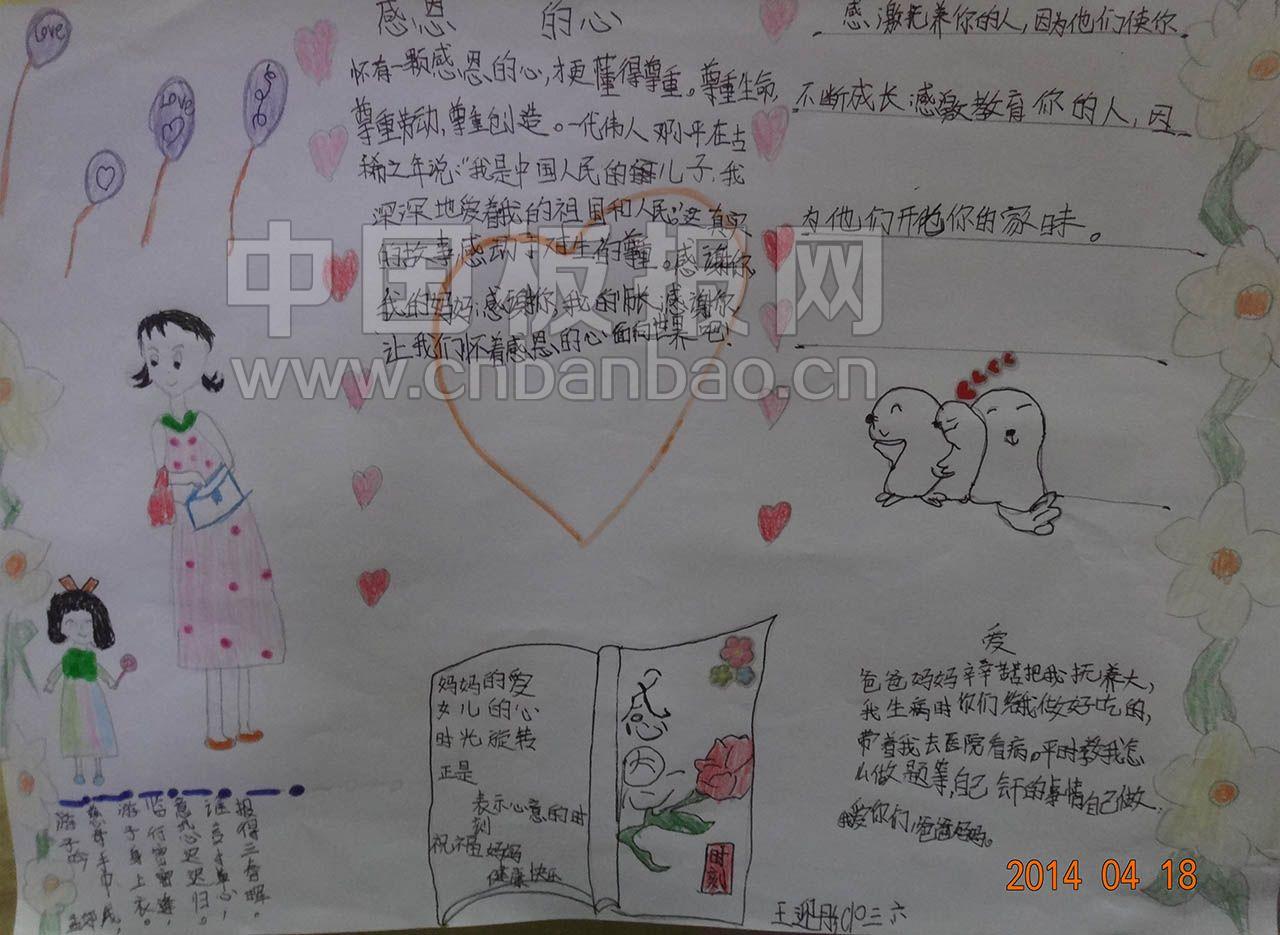 Love
Love
感恩 的心
怀有一颗感恩的心，才更懂得尊重。尊重生命，
尊重劳动，尊重创造。一代伟人邓小平在古
稀之年说："我是中国人民的儿子，我
深深地爱着我的祖国和人民。"这真实
的故事感动了人生的尊重。感谢你，
我的妈妈；感谢你，我的感谢你，
让我们怀着感恩的心面向世界吧！
感激抚养你的人，因为他们使你
不断成长感激教育你的人，因
为他们开你的。
中国板报网
www.cnbanbao.cn
妈妈的爱
女儿的心
时光旋转
正是
表示心意的时
刻
祝福妈妈
健康快乐
感
恩
时刻
爱
爸爸妈妈辛辛苦苦把我抚养大，
我生病时你们给我做好吃的，
带着我去医院看病。平时教我怎
么做题等，自己的事情自己做。
我爱你们，爸爸妈妈。
游子吟
孟郊
慈母手中线，
游子身上衣。
临行密密缝，
意恐迟迟归。
谁言寸草心，
报得三春晖。
2014 04 18
王 三六